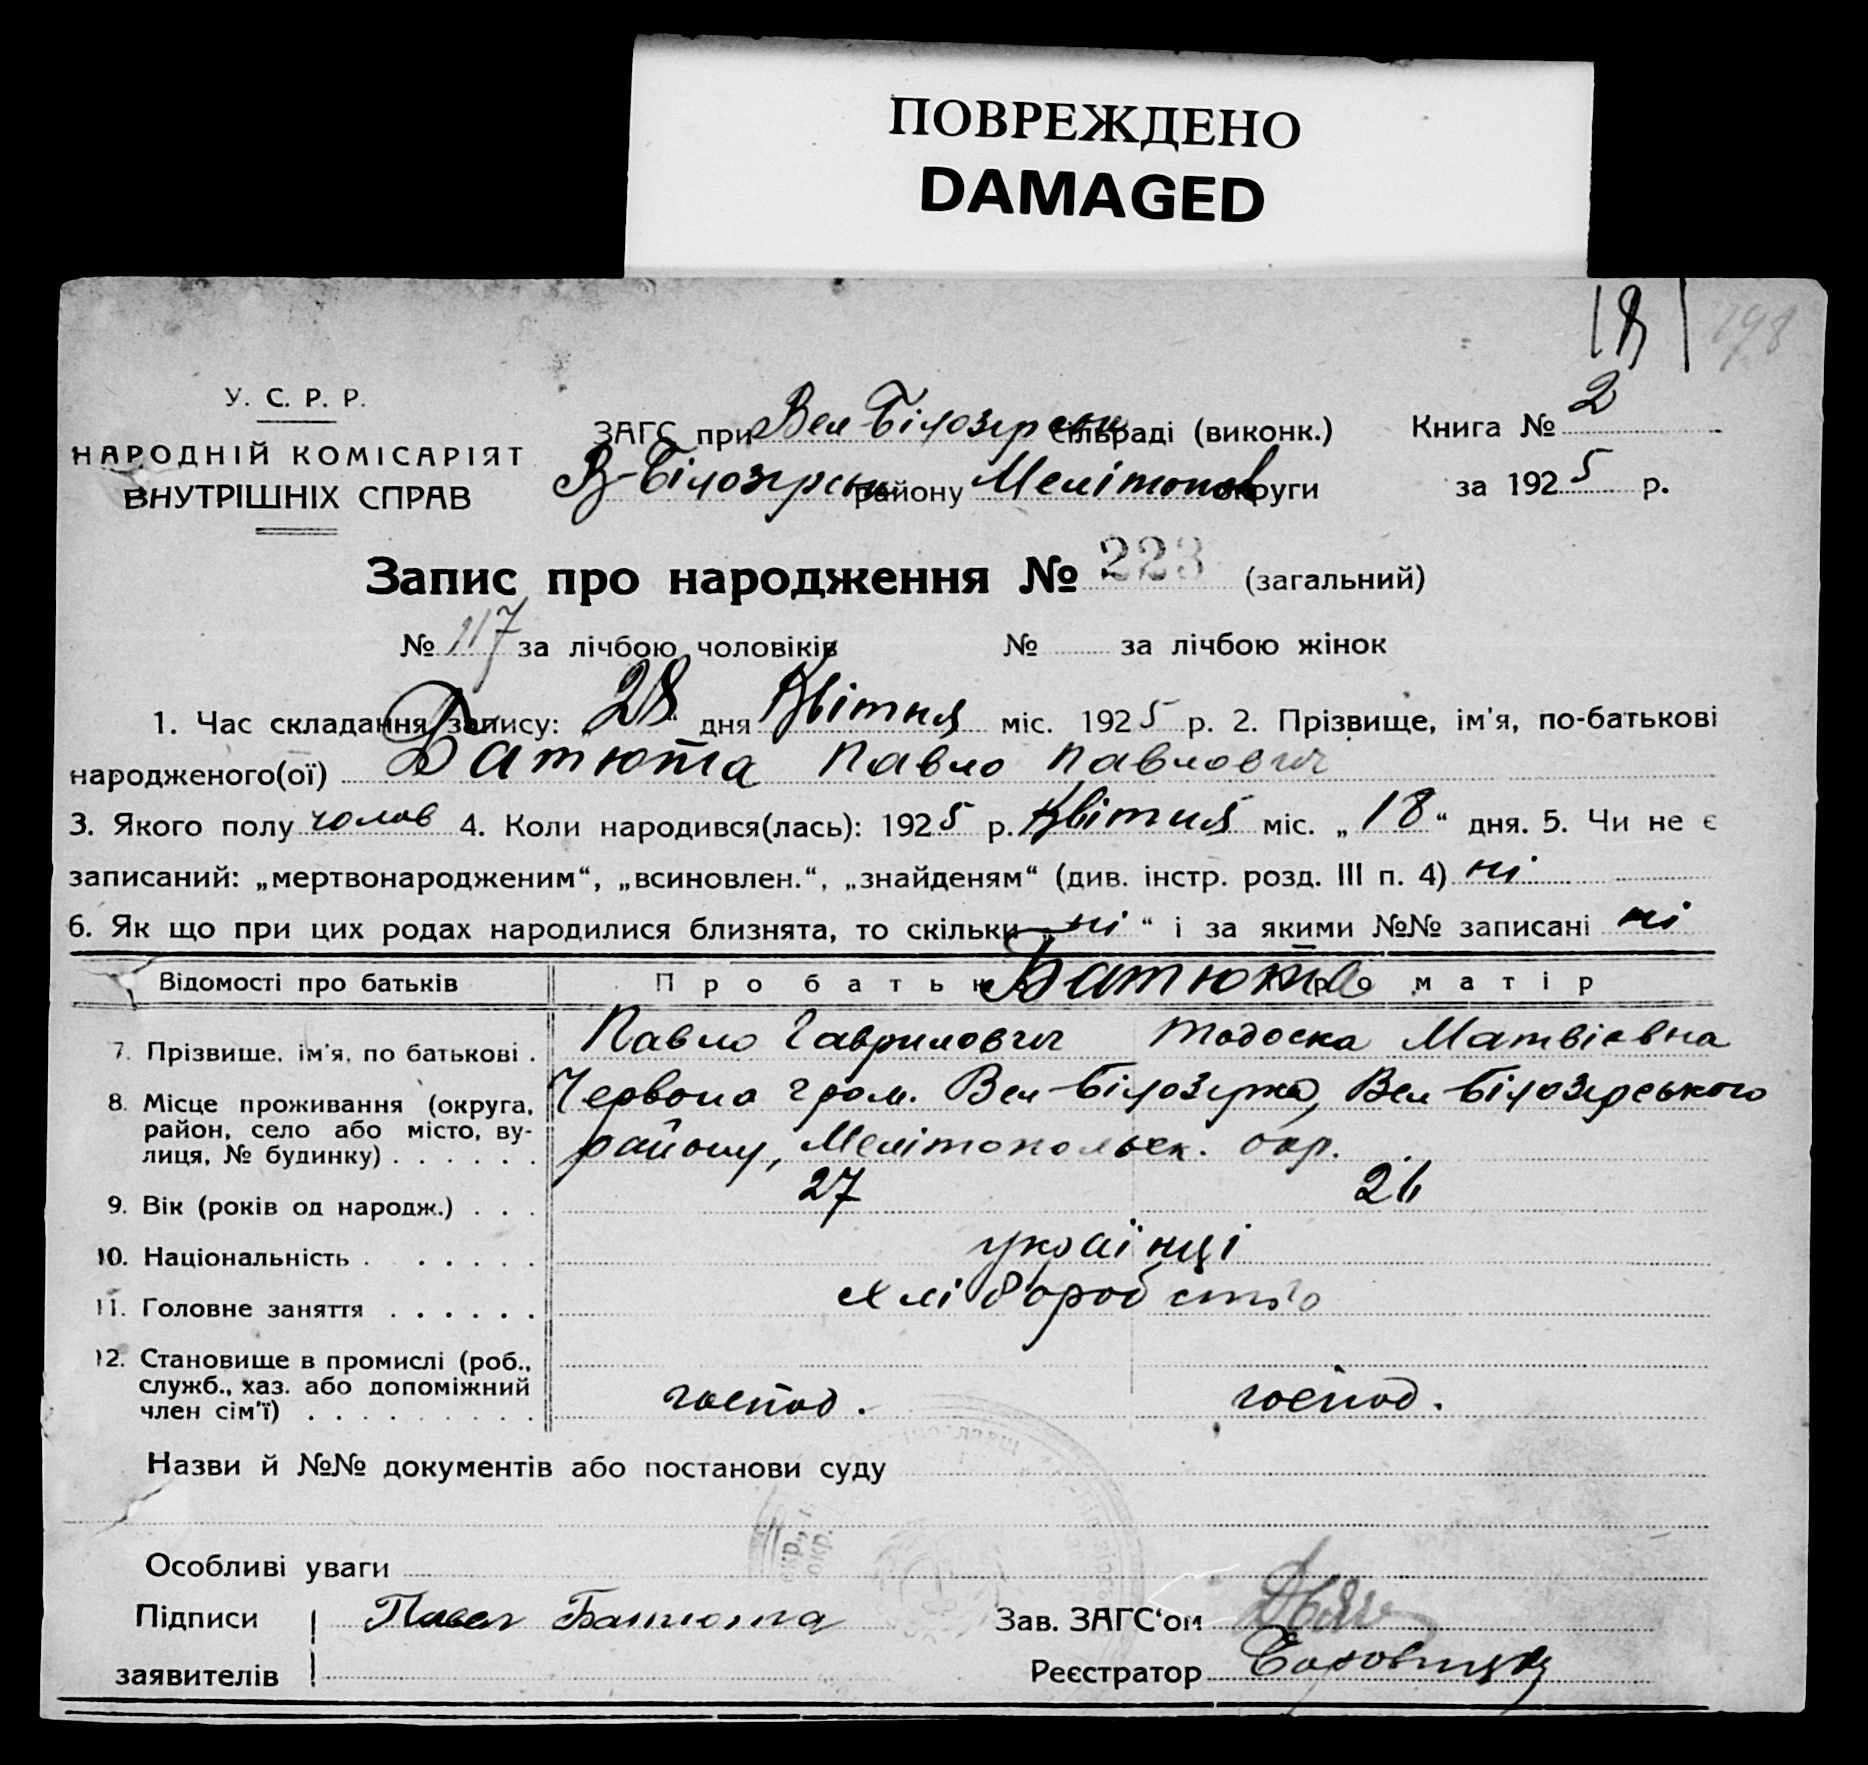 ПОВРЕЖДЕНО
DAMAGED
18
198
У. С. Р. Р.
НАРОДНІЙ КОМІСАРІЯТ
ВНУТРІШНІХ СПРАВ
ЗАГС при Вел Білозерськ сільраді (виконк.) Книга № 2
В-Білозерськ району Мелітопол округи за 1925 р.
Запис про народження № 223 (загальний)
№ 117 за лічбою чоловіків № за лічбою жінок
1. Час складання запису: „28“ дня Квітня міс. 1925 р. 2. Прізвище, ім'я, по-батькові
народженого(ої) Батюта Павло Павлович
3. Якого полу чолов 4. Коли народився(лась): 1925 р. Квітня міс. „18“ дня. 5. Чи не є
записаний: „мертвонародженим“, „всиновлен.“, „знайденям“ (див. інстр. розд. III п. 4) ні
6. Як що при цих родах народилися близнята, то скільки „ні“ і за якими №№ записані ні
Відомості про батьків Про батька Про матір
Батюти
7. Прізвище, ім'я, по батькові . Павло Гаврилович Тодоска Матвієвна
8. Місце проживання (округа, Червона гром. Вел Білозерка, Вел Білозерського
район, село або місто, ву-
лиця, № будинку) . . . . . . району, Мелітопольськ. окр.
9. Вік (років од народж.) . . . 27 26
10. Національність . . . . . . українці
11. Головне заняття . . . . . . хліборобство
12. Становище в промислі (роб.,
служб., хаз. або допоміжний
член сім'ї) . . . . . . . . . господ. господ.
Назви й №№ документів або постанови суду
Особливі уваги
Підписи Павел Батюта Зав. ЗАГС‘ом
заявителів Реєстратор